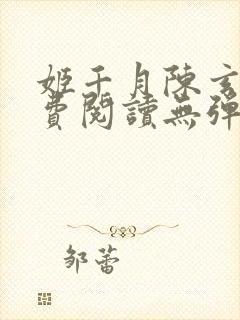 姬千月陳玄
費閱讀無彈
邹蕾